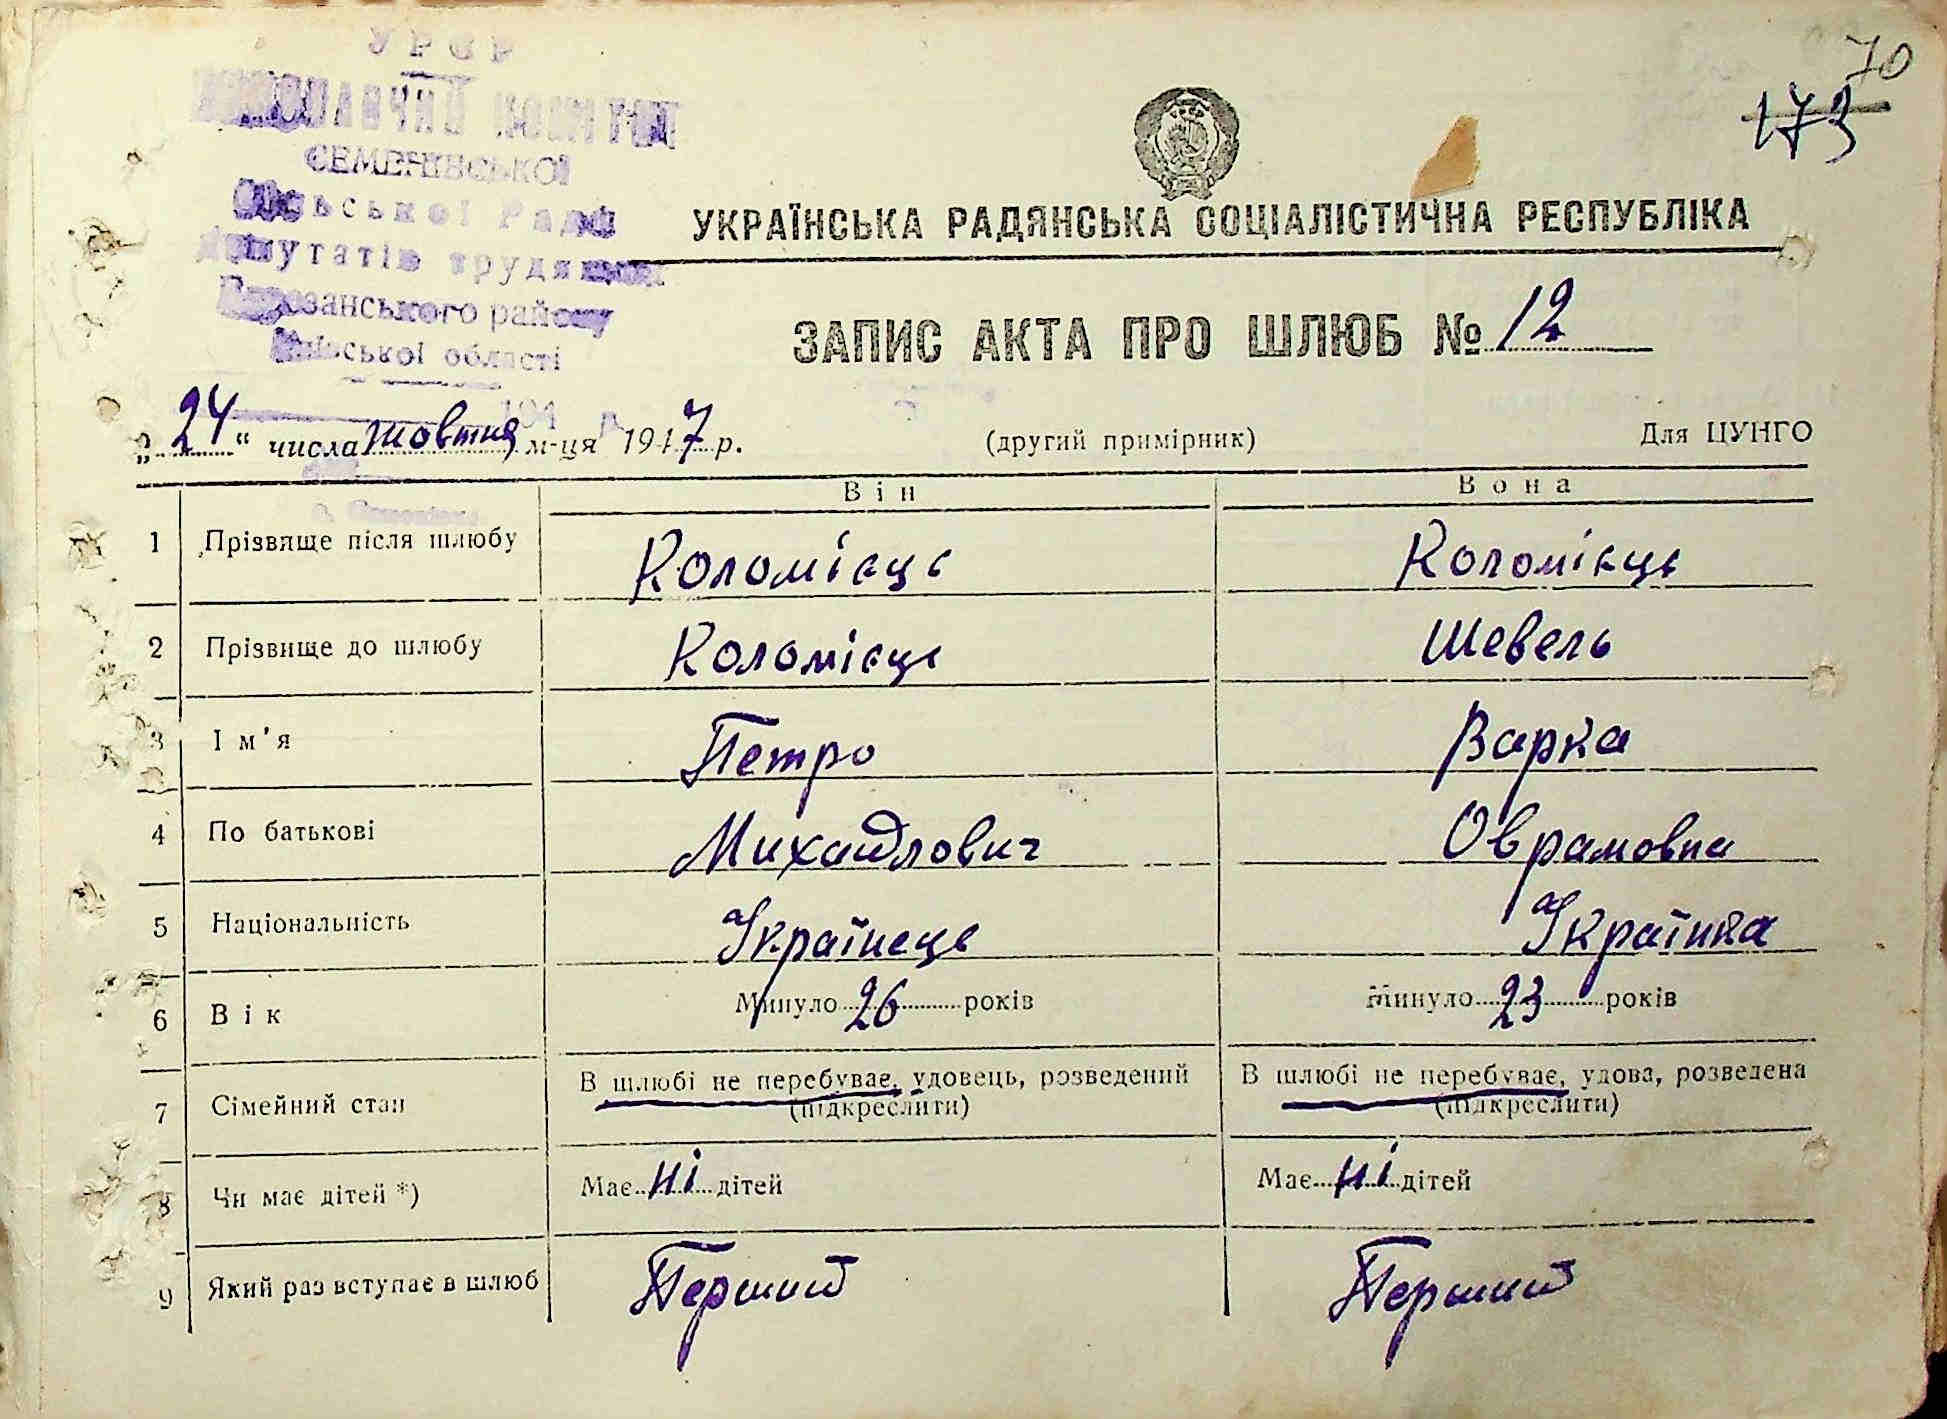 УРСР
ВИКОНАВЧИЙ КОМІТЕТ
СЕМЕНІВСЬКОЇ
Сільської Ради
депутатів трудящих
Березанського району
Київської області
70
173
УКРАЇНСЬКА РАДЯНСЬКА СОЦІАЛІСТИЧНА РЕСПУБЛІКА
ЗАПИС АКТА ПРО ШЛЮБ № 12
„24“ числа жовтня м-ця 1947 р. (другий примірник) Для ЦУНГО
Він Вона
1 Прізвище після шлюбу Коломієць Коломієць
2 Прізвище до шлюбу Коломієць Шевель
3 Ім'я Петро Варка
4 По батькові Михайлович Оврамовна
5 Національність Українець Українка
6 Вік Минуло 26 років Минуло 23 років
7 Сімейний стан В шлюбі не перебуває, удовець, розведений В шлюбі не перебуває, удова, розведена
(підкреслити) (підкреслити)
8 Чи має дітей *) Має ні дітей Має ні дітей
9 Який раз вступає в шлюб Перший Перший